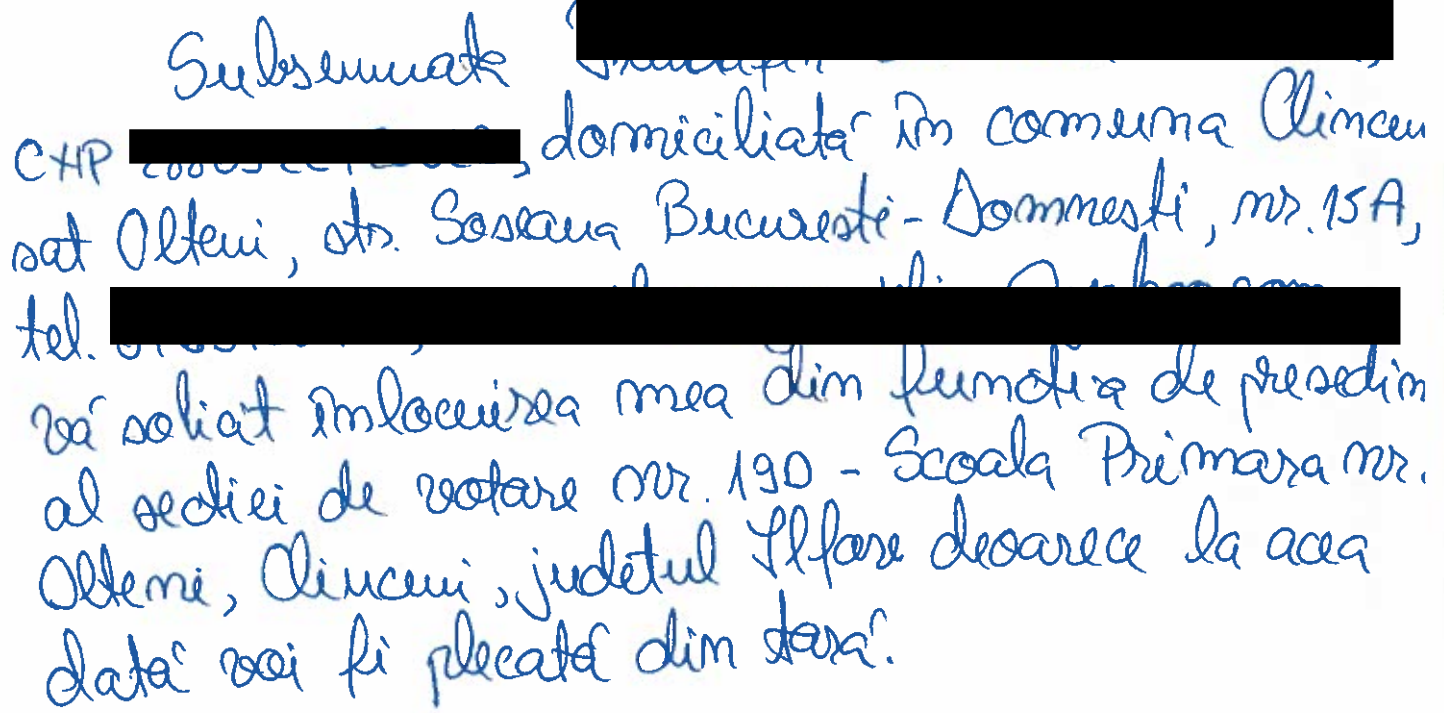 Subsemnata
CNP , domiciliată în comuna Clinceni
sat Olteni, str. Soseaua Bucuresti - Domnesti, nr. 15A,
tel.
vă solicit înlocuirea mea din functia de presedin
al sectiei de votare nr. 190 - Scoala Primara nr.
Olteni, Clinceni, judetul Ilfov deoarece la acea
dată voi fi plecată din tară.